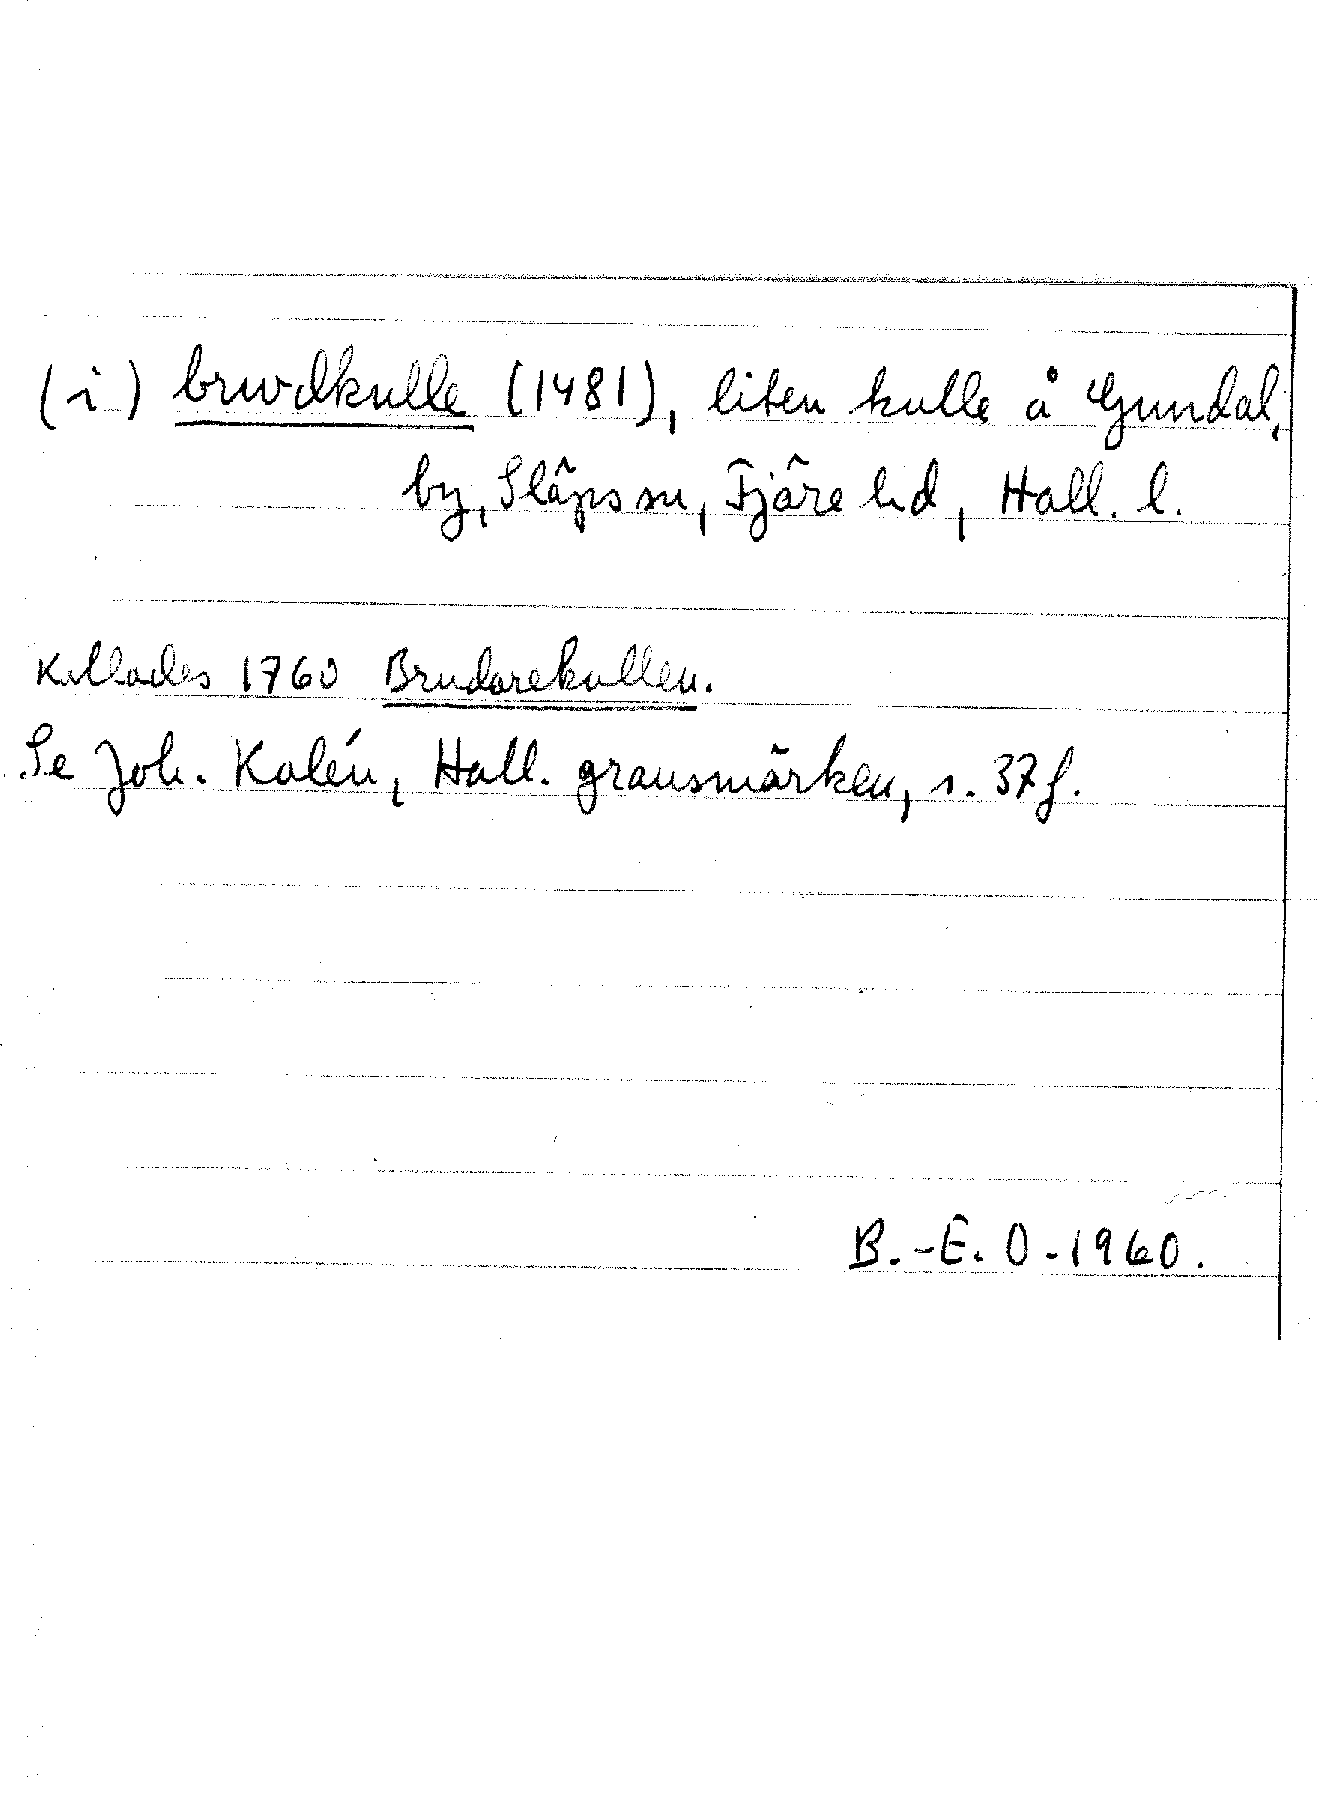 (i) brwdkulle (1481), liten kulle å Gundal,
by, Släps sn, Fjäre hd, Hall. l.
Kallades 1760 Brudarekullen.
Se Joh. Kalén, Hall. gränsmärken, s. 37 f.
B.-E. O. 1960.